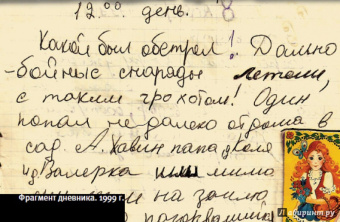 12 00 день.
Какой был обстрел! Дально
-бойные снаряды летели,
с таким грохотом! Один
попал не далеко от дома в
сад. А. Хавин папа дядя Коля
и Валерка шли мимо
на землю
Фрагмент дневника. 1999 г.
Лабиринт.ру